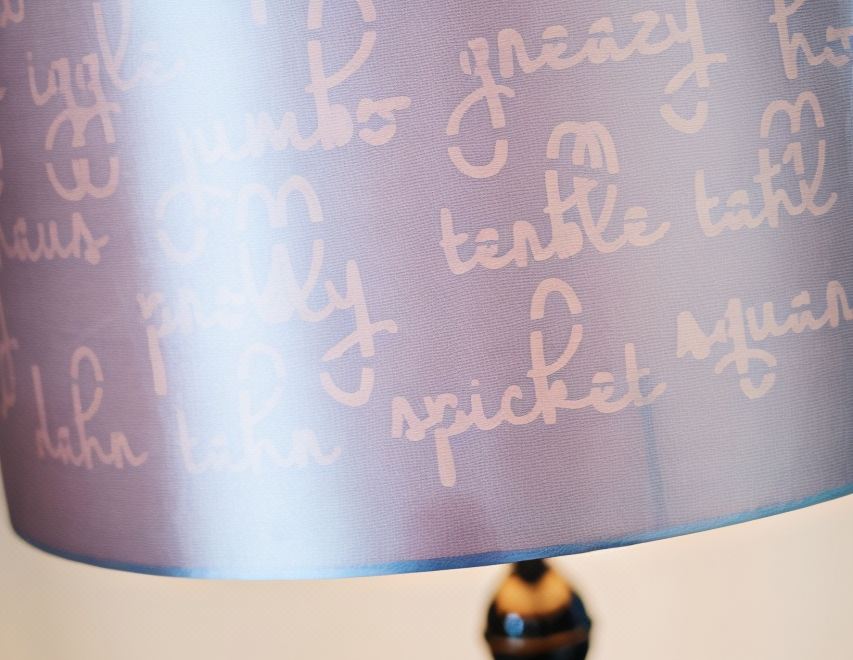 iggle greazy
jumbo
haus terrble tahl
probly squar
dahn tahn spicket